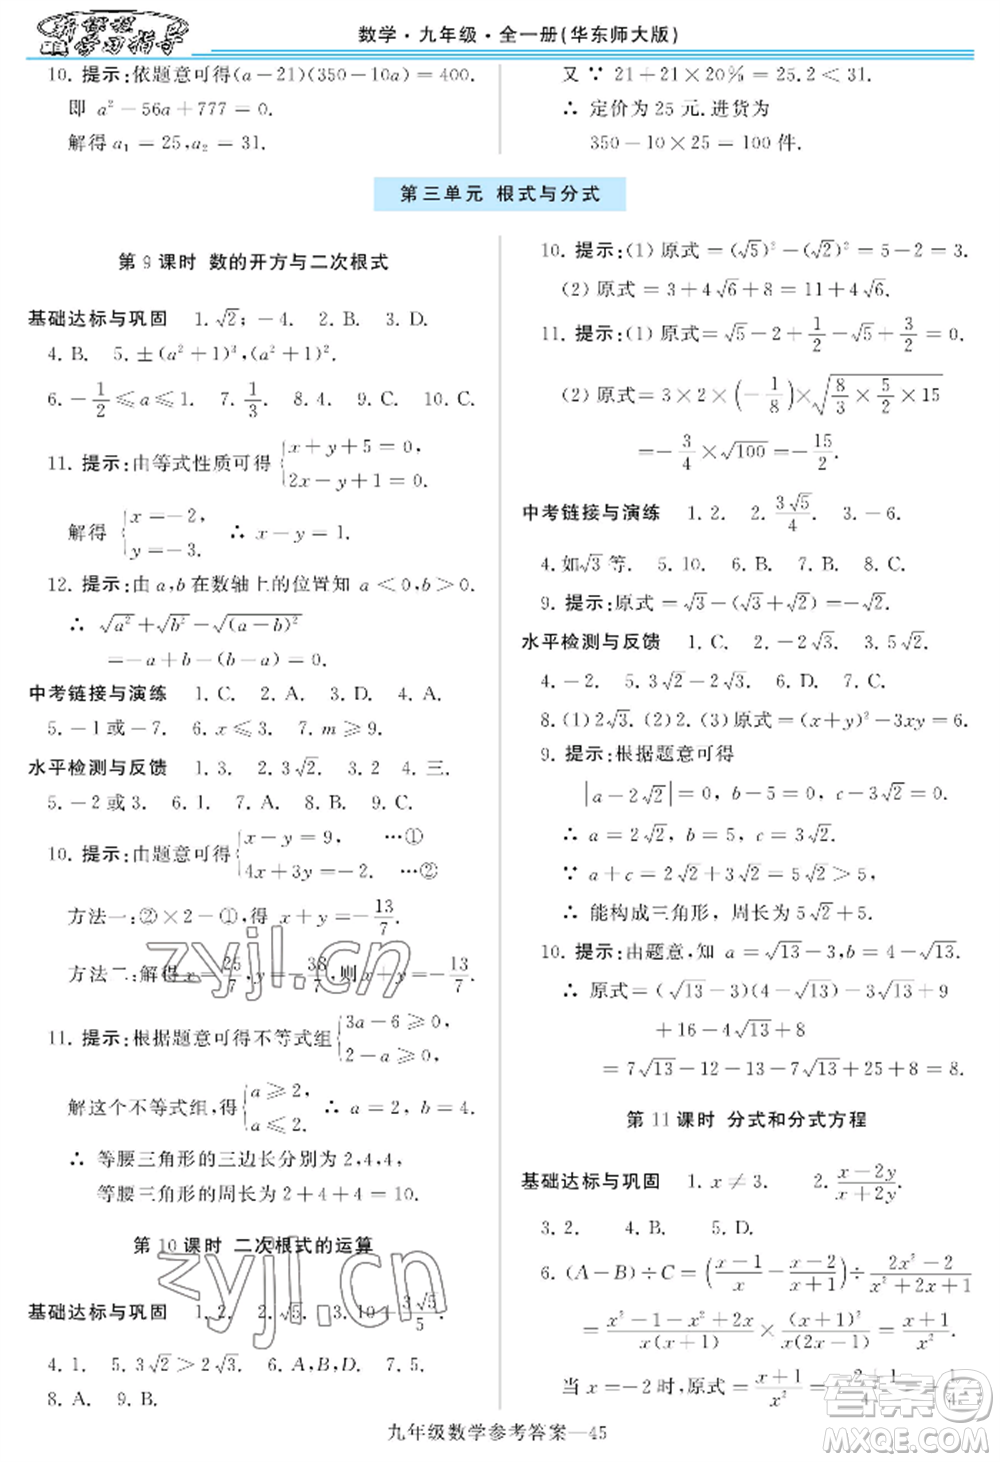 新课程
学习指导
数学·九年级·全一册(华东师大版)
10. 提示:依题意可得(a-21)(350-10a)=400.
即 a²-56a+777=0.
解得 a₁=25,a₂=31.
又 ∵ 21+21×20%=25.2<31.
∴ 定价为25元.进货为
350-10×25=100件.
第三单元 根式与分式
第9课时 数的开方与二次根式
基础达标与巩固 1. √2; -4. 2. B. 3. D.
4. B. 5. ±(a²+1)³,(a²+1)².
6. -1/2≤a≤1. 7. 1/3. 8. 4. 9. C. 10. C.
11. 提示:由等式性质可得 {x+y+5=0,
2x-y+1=0.
解得 {x=-2,
y=-3. ∴ x-y=1.
12. 提示:由a,b在数轴上的位置知 a<0,b>0.
∴ √a²+√b²-√(a-b)²
=-a+b-(b-a)=0.
中考链接与演练 1. C. 2. A. 3. D. 4. A.
5. -1或-7. 6. x≤3. 7. m≥9.
水平检测与反馈 1. 3. 2. 3√2. 3. 2 4. 三.
5. -2或3. 6. 1. 7. A. 8. B. 9. C.
10. 提示:由题意可得 {x-y=9, …①
4x+3y=-2. …②
方法一:②×2-①,得 x+y=-13/7.
方法二:解得x=25/7,y=-38/7,则x+y=-13/7.
11. 提示:根据题意可得不等式组 {3a-6≥0,
2-a≥0.
解这个不等式组,得 {a≥2,
a≤2. ∴ a=2, b=4.
∴ 等腰三角形的三边长分别为2,4,4,
等腰三角形的周长为2+4+4=10.
第10课时 二次根式的运算
基础达标与巩固 1. 2. 2. √2. 3. 10+3√5/5.
4. 1. 5. 3√2>2√3. 6. A,B,D. 7. 5.
8. A. 9. B.
10. 提示:(1) 原式=(√5)²-(√2)²=5-2=3.
(2) 原式=3+4√6+8=11+4√6.
11. 提示:(1) 原式=√5-2+1/2-√5+3/2=0.
(2) 原式=3×2×(-1/8)×√(8/3×5/2×15)
=-3/4×√100=-15/2.
中考链接与演练 1. 2. 2. 3√5/4. 3. -6.
4. 如√3等. 5. 10. 6. B. 7. B. 8. C.
9. 提示:原式=√3-(√3+√2)=-√2.
水平检测与反馈 1. C. 2. -2√3. 3. 5√2.
4. -2. 5. 3√2-√3. 6. D. 7. C.
8. (1) 2√3. (2) 2. (3) 原式=(x+y)²-3xy=6.
9. 提示:根据题意可得
|a-2√2|=0, b-5=0, c-3√2=0.
∴ a=2√2, b=5, c=3√2.
∵ a+c=2√2+3√2=5√2>5,
∴ 能构成三角形, 周长为5√2+5.
10. 提示:由题意,知 a=√13-3,b=4-√13.
∴ 原式=(√13-3)(√13-3+9
+16-4√13+8
=7√13-12-13-13-3√13+8=
第11课时 分式和分式方程
基础达标与巩固 1. x≠3. 2. (x-2y)/(x+2y).
3. 2. 4. B. 5. D.
6. (A-B)÷C=((x-1)/x-(x-2)/(x+1))÷(2x²-2)/(x²+2x+1)
=(x²-1-x²+2x)/(x(x+1))×(x+1)²/(2x-1)=(x+1)/x².
当x=-2时,原式=(x+1)/x²=-1/4
九年级数学参考答案—45
zyjl.cn
zyjl.cn
答案圈